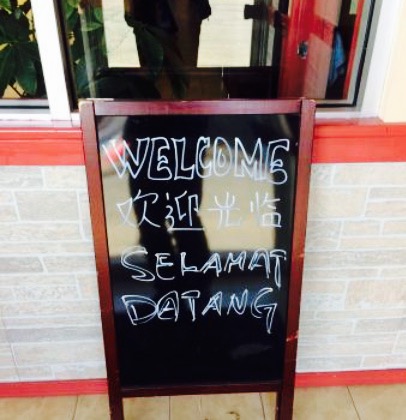 WELCOME
欢迎光临
SELAMAT
DATANG